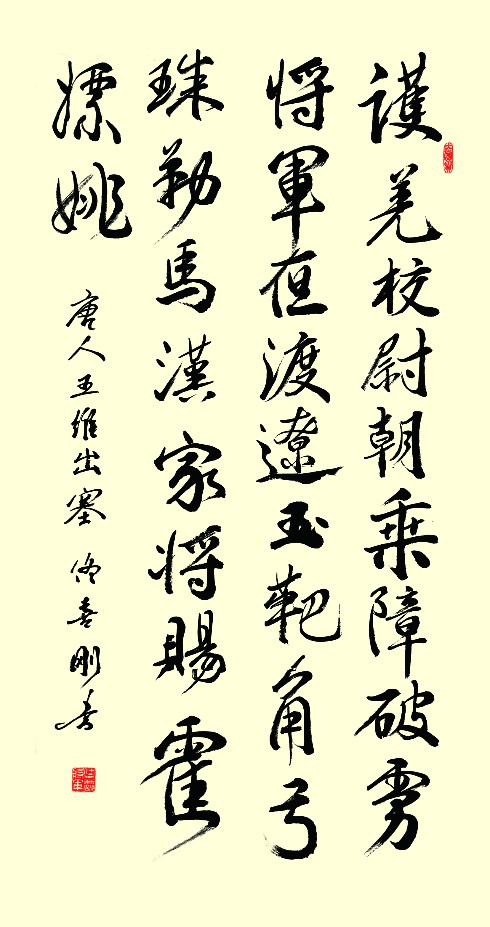 護羌校尉朝乘障破虜
將軍亱渡遼玉靶角弓
珠勒馬漢家將賜霍
嫖姚
唐人王維出塞 佟喜刚书